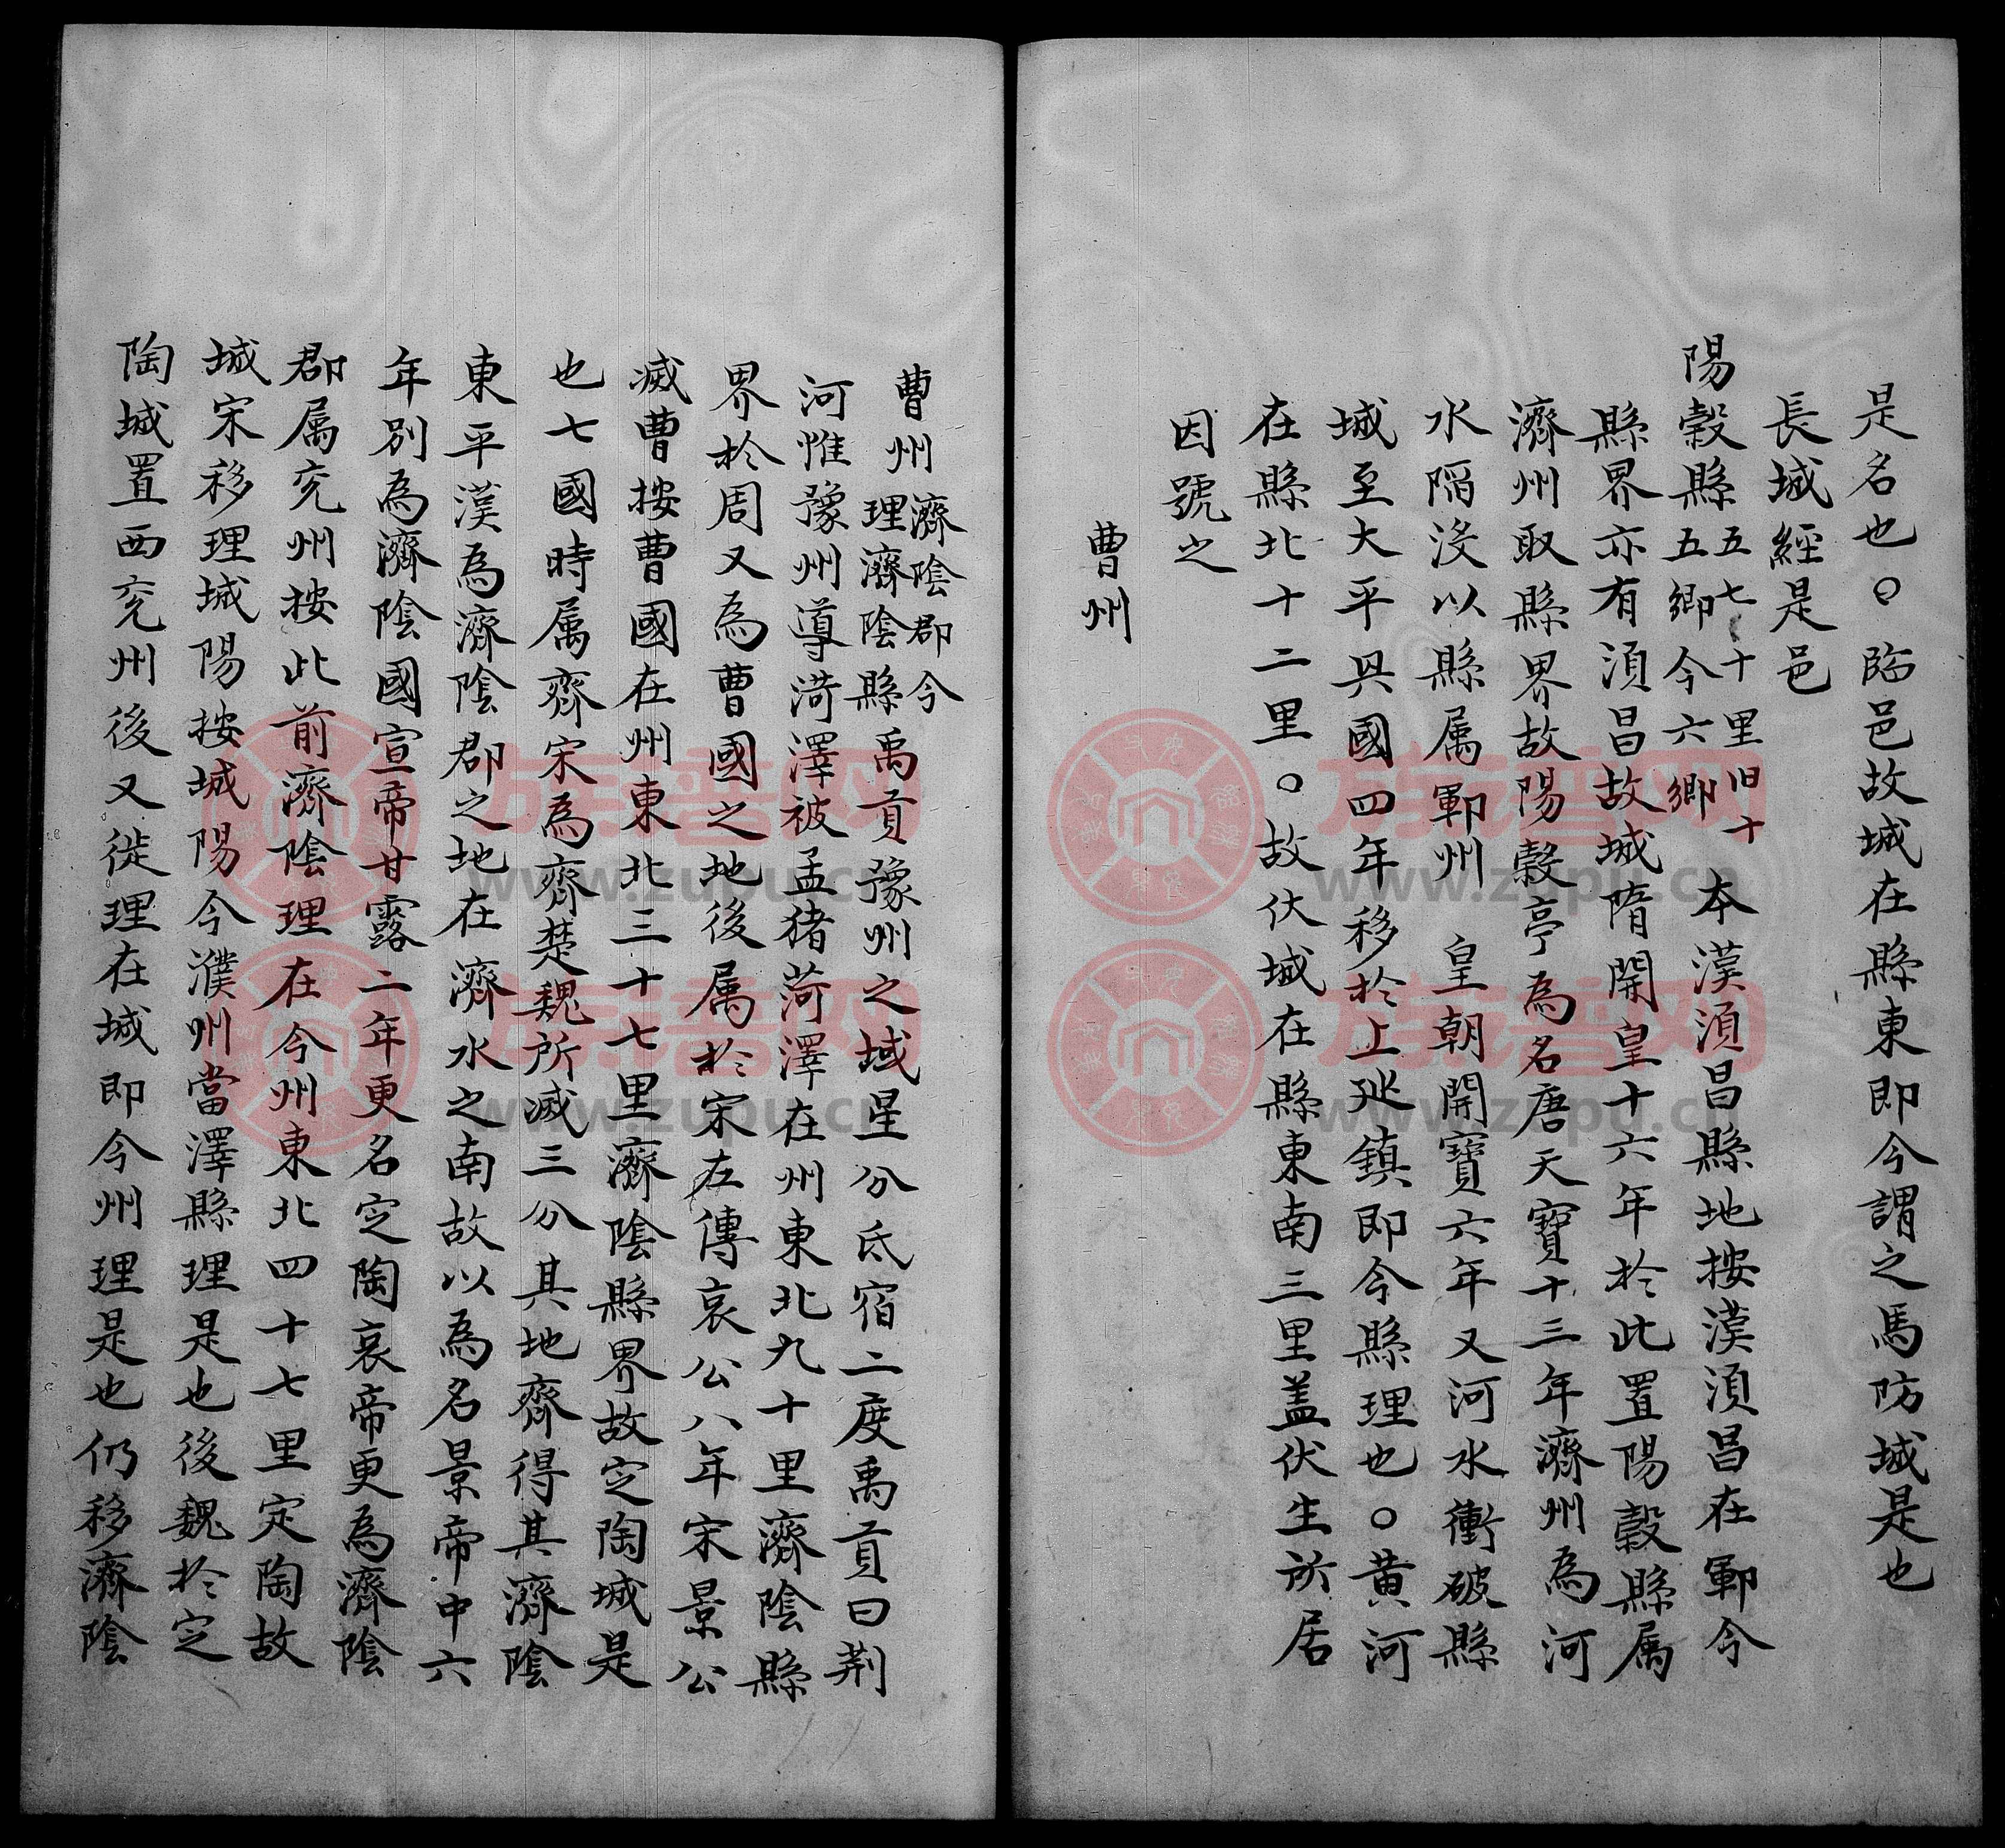 是名也○臨邑故城在縣東即今謂之馬防城是也
長城經是邑
陽穀縣五七十里旧十
五鄉今六鄉
本漢湏昌縣地按漢湏昌在鄆今
縣界亦有湏昌故城隋開皇十六年於此置陽穀縣属
濟州取縣界故陽穀亭為名唐天寶十三年濟州為河
水陷沒以縣属鄆州 皇朝開寶六年又河水衝破縣
城至大平興國四年移於上廵鎮即今縣理也○黃河
在縣北十二里○故伏城在縣東南三里盖伏生所居
因號之
曹州
曹州濟陰郡今
理濟陰縣
禹貢豫州之域星分氐宿二度禹貢曰荆
河惟豫州導菏澤被孟猪菏澤在州東北九十里濟陰縣
界於周又為曹國之地後属於宋左傳哀公八年宋景公
滅曹按曹國在州東北三十七里濟陰縣界故定陶城是
也七國時属齊宋為齊楚魏所滅三分其地齊得其濟陰
東平漢為濟陰郡之地在濟水之南故以為名景帝中六
年別為濟陰國宣帝甘露二年更名定陶哀帝更為濟陰
郡属兖州按此前濟陰理在今州東北四十七里定陶故
城宋移理城陽按城陽今濮州當澤縣理是也後魏於定
陶城置西兖州後又徙理在城即今州理是也仍移濟陰
族谱网
www.zupu.cn
族谱网
www.zupu.cn
族谱网
www.zupu.cn
族谱网
www.zupu.cn